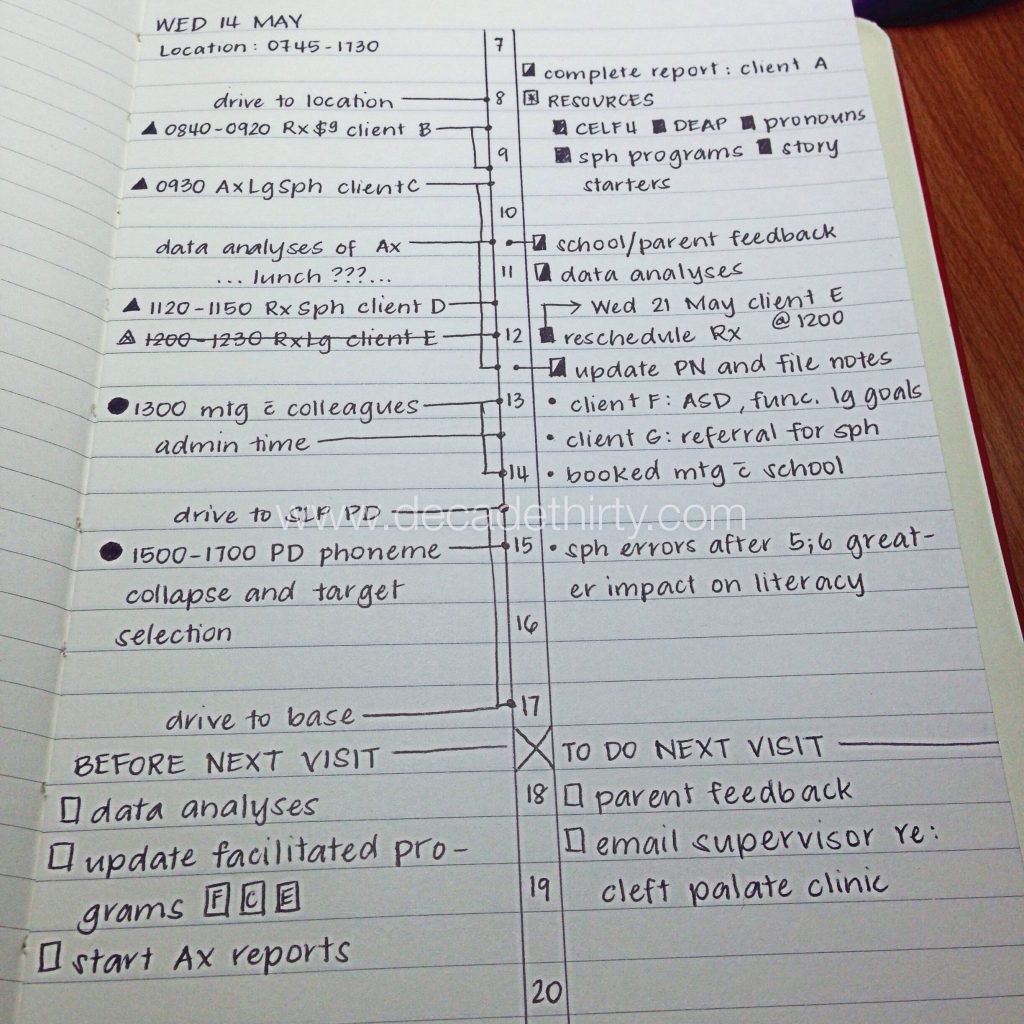 WED 14 MAY
Location: 0745-1730
drive to location
0840-0920 Rx $9 client B
0930 Ax Lg Sph client C
data analyses of Ax
... lunch ???...
1120-1150 Rx Sph client D
1200-1230 Rx Lg client E
1300 mtg c̄ colleagues
admin time
drive to SLP PD
1500-1700 PD phoneme
collapse and target
selection
drive to base
BEFORE NEXT VISIT
data analyses
update facilitated pro-
grams F C E
start Ax reports
7
8
9
10
11
12
13
14
15
16
17
18
19
20
complete report: client A
RESOURCES
CELF4 DEAP pronouns
sph programs story
starters
school/parent feedback
data analyses
→ Wed 21 May client E
@ 1200
reschedule Rx
update PN and file notes
• client F: ASD, func. lg goals
• client G: referral for sph
• booked mtg c̄ school
• sph errors after 5;6 great-
er impact on literacy
TO DO NEXT VISIT
parent feedback
email supervisor re:
cleft palate clinic
www.decadethirty.com